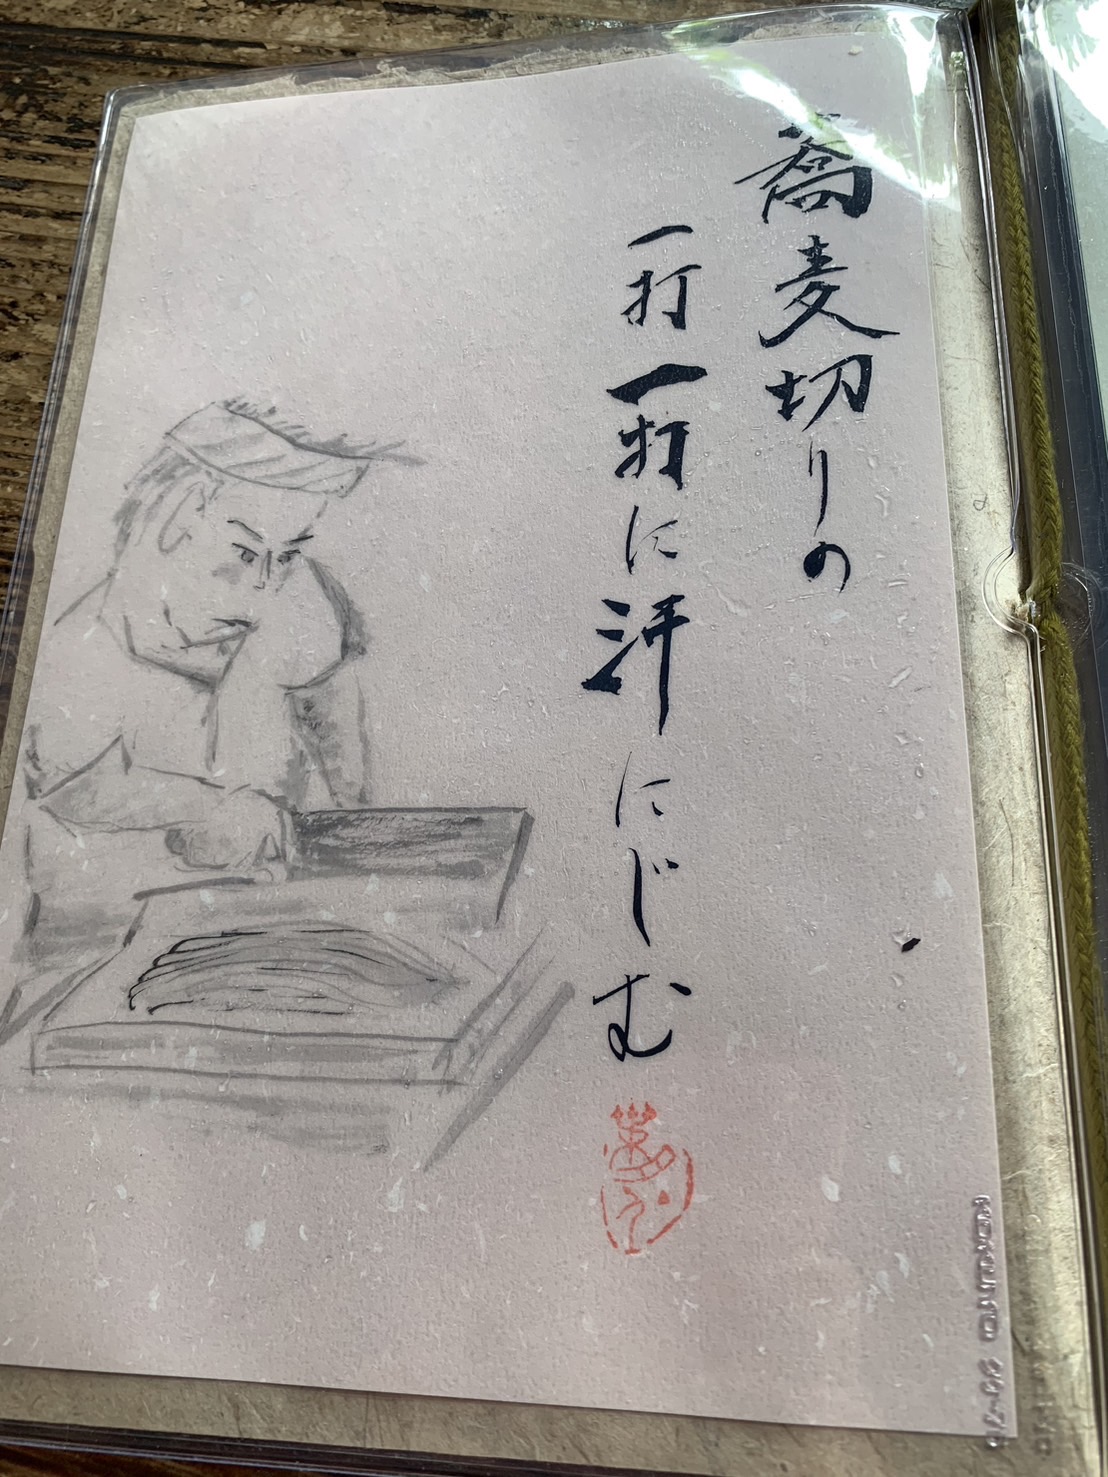 蕎麦切りの
一打一打に汗にじむ